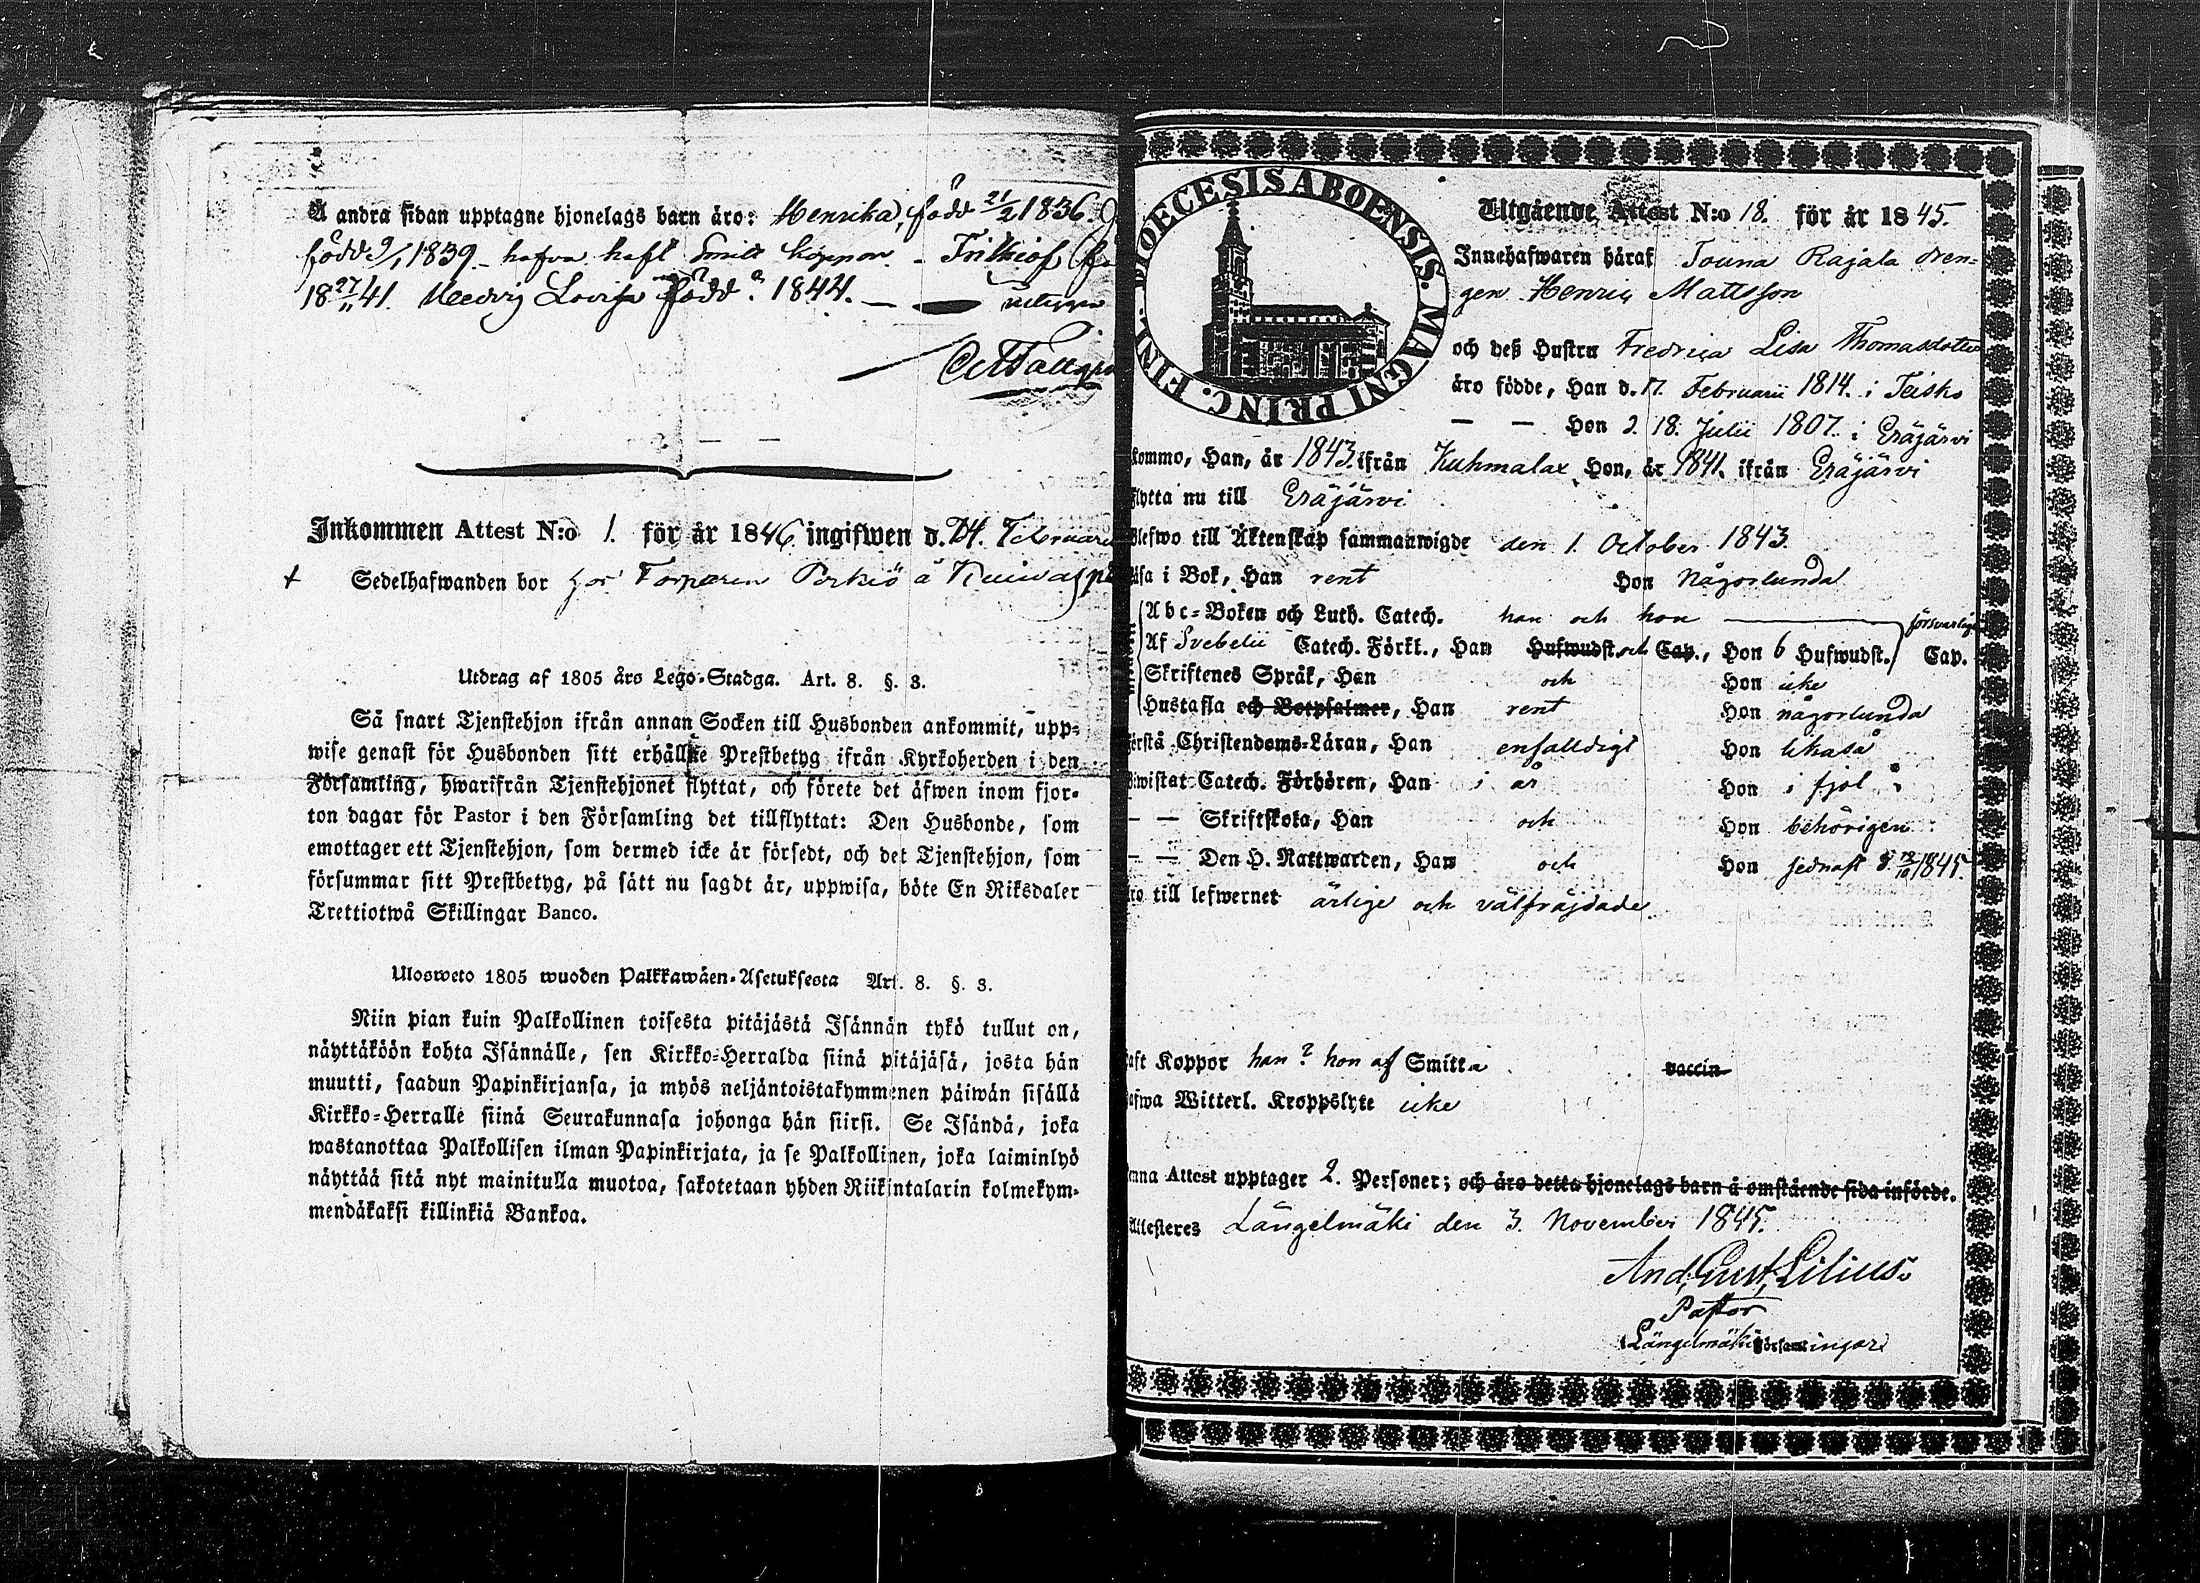 Å andra sidan upptagne hjonelags barn äro: Henrika, född 21/2 1836.
född 9/1 1839 - hafva haft Smitt koppor - Frithiof
18 27/11 41. Hedvig Lovisa född ? 1844. —
Inkommen Attest N:o 1. för år 1846 ingifwen d. 24. Februari
+ Sedelhafwanden bor hos Torparen Perkiö å
Utdrag af 1805 års Lego-Stadga. Art. 8. §. 3.
Så snart Tjenstehjon ifrån annan Socken till Husbonden ankommit, upp-
wise genast för Husbonden sitt erhållne Prestbetyg ifrån Kyrkoherden i den
Församling, hwarifrån Tjenstehjonet flyttat, och förete det äfwen inom fjor-
ton dagar för Pastor i den Församling det tillflyttat: Den Husbonde, som
emottager ett Tjenstehjon, som dermed icke är försedt, och det Tjenstehjon, som
försummar sitt Prestbetyg, på sätt nu sagdt är, uppwisa, böte En Riksdaler
Trettiotwå Skillingar Banco.
Ulosweto 1805 wuoden Palkkawäen-Asetuksesta Art. 8. §. 3.
Niin pian kuin Palkollinen toisesta pitäjästä Isännän tykö tullut on,
näyttäköön kohta Isännälle, sen Kirkko-Herralda siinä pitäjäsä, josta hän
muutti, saadun Papinkirjansa, ja myös neljäntoistakymmenen päiwän sisällä
Kirkko-Herralle siinä Seurakunnasa johonga hän siirsi. Se Isändä, joka
wastanottaa Palkollisen ilman Papinkirjata, ja se Palkollinen, joka laiminlyö
näyttää sitä nyt mainitulla muotoa, sakotetaan yhden Riikintalarin kolmekym-
mendäkaksi killinkiä Bankoa.
DIOECESIS ABOENSIS. MAGNI PRINC. FINL.
Utgående Attest N:o 18. för år 1845.
Innehafwaren häraf Touna Rajala dren-
gen Henric Mattsson
och deß Hustru Fredrica Lisa Thomasdotter
äro födde, Han d. 17. Februarii 1814. i Teisko
— — Hon d. 18. Julii 1807. i Eräjärvi
kommo, Han, år 1843. ifrån Kuhmalax Hon, år 1841. ifrån Eräjärvi
flytta nu till Eräjärvi
Blefwo till Äktenskap sammanwigde den 1. October 1843.
läsa i Bok, Han rent Hon någorlunda
Abc-Boken och Luth. Catech. han och hon — försvarligt
Af Svebelii Catech. Förkl., Han Hufwudst. och Cap., Hon 6 Hufwudst. Cap.
Skriftenes Språk, Han och Hon icke
Hustafla och Botpsalmer, Han rent Hon någorlunda
förstå Christendoms-Läran, Han enfalldigt Hon likaså
Biwistat Catech. Förhören, Han i år Hon i fjol
— — Skriftskola, Han och Hon behörigen
— — Den H. Nattwarden, Han och Hon sednast d 12/10 1845.
äro till lefwernet ärlige och välfräjdade.
haft Koppor han ? hon af Smitta vaccin
hafwa Witterl. Kroppslyte icke
Denna Attest upptager 2. Personer; och äro detta hjonelags barn å omstående sida införde.
Attesteres Längelmäki den 3. November 1845.
And. Gust. Lilius.
Pastor
i Längelmäki Församlingar